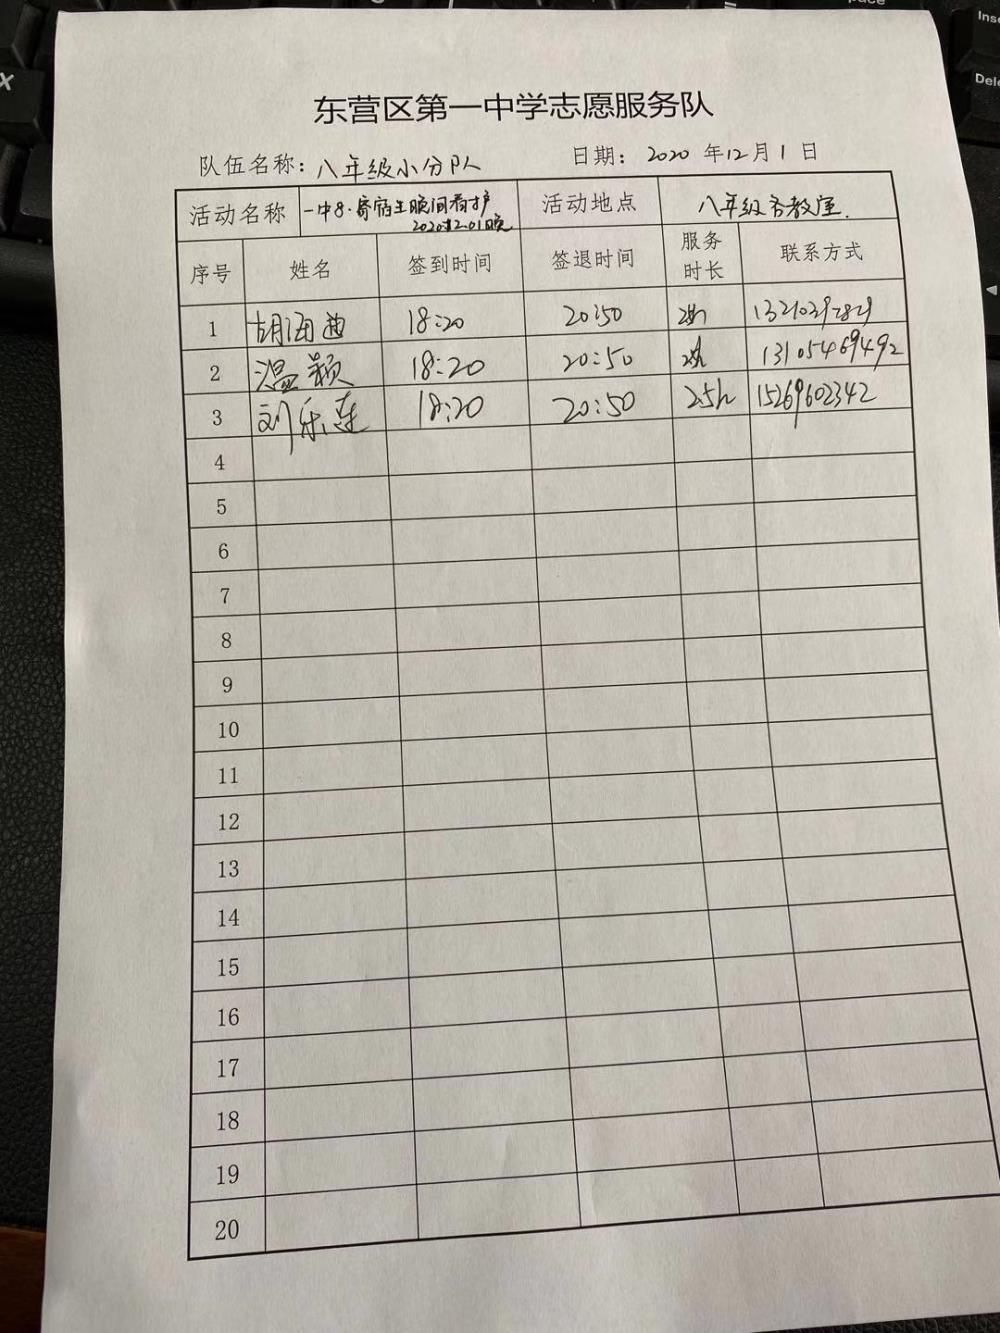 东营区第一中学志愿服务队
队伍名称：八年级小分队 日期：2020 年 12 月 1 日
活动名称 一中8·寄宿生晚间看护 2020.12.01晚 活动地点 八年级各教室.
序号 姓名 签到时间 签退时间 服务时长 联系方式
1 胡海迪 18:20 20:50
2 温颖 18:20 20:50 13105469492
3 刘乐莲 18:20 20:50 2.5h 15269602342
4
5
6
7
8
9
10
11
12
13
14
15
16
17
18
19
20